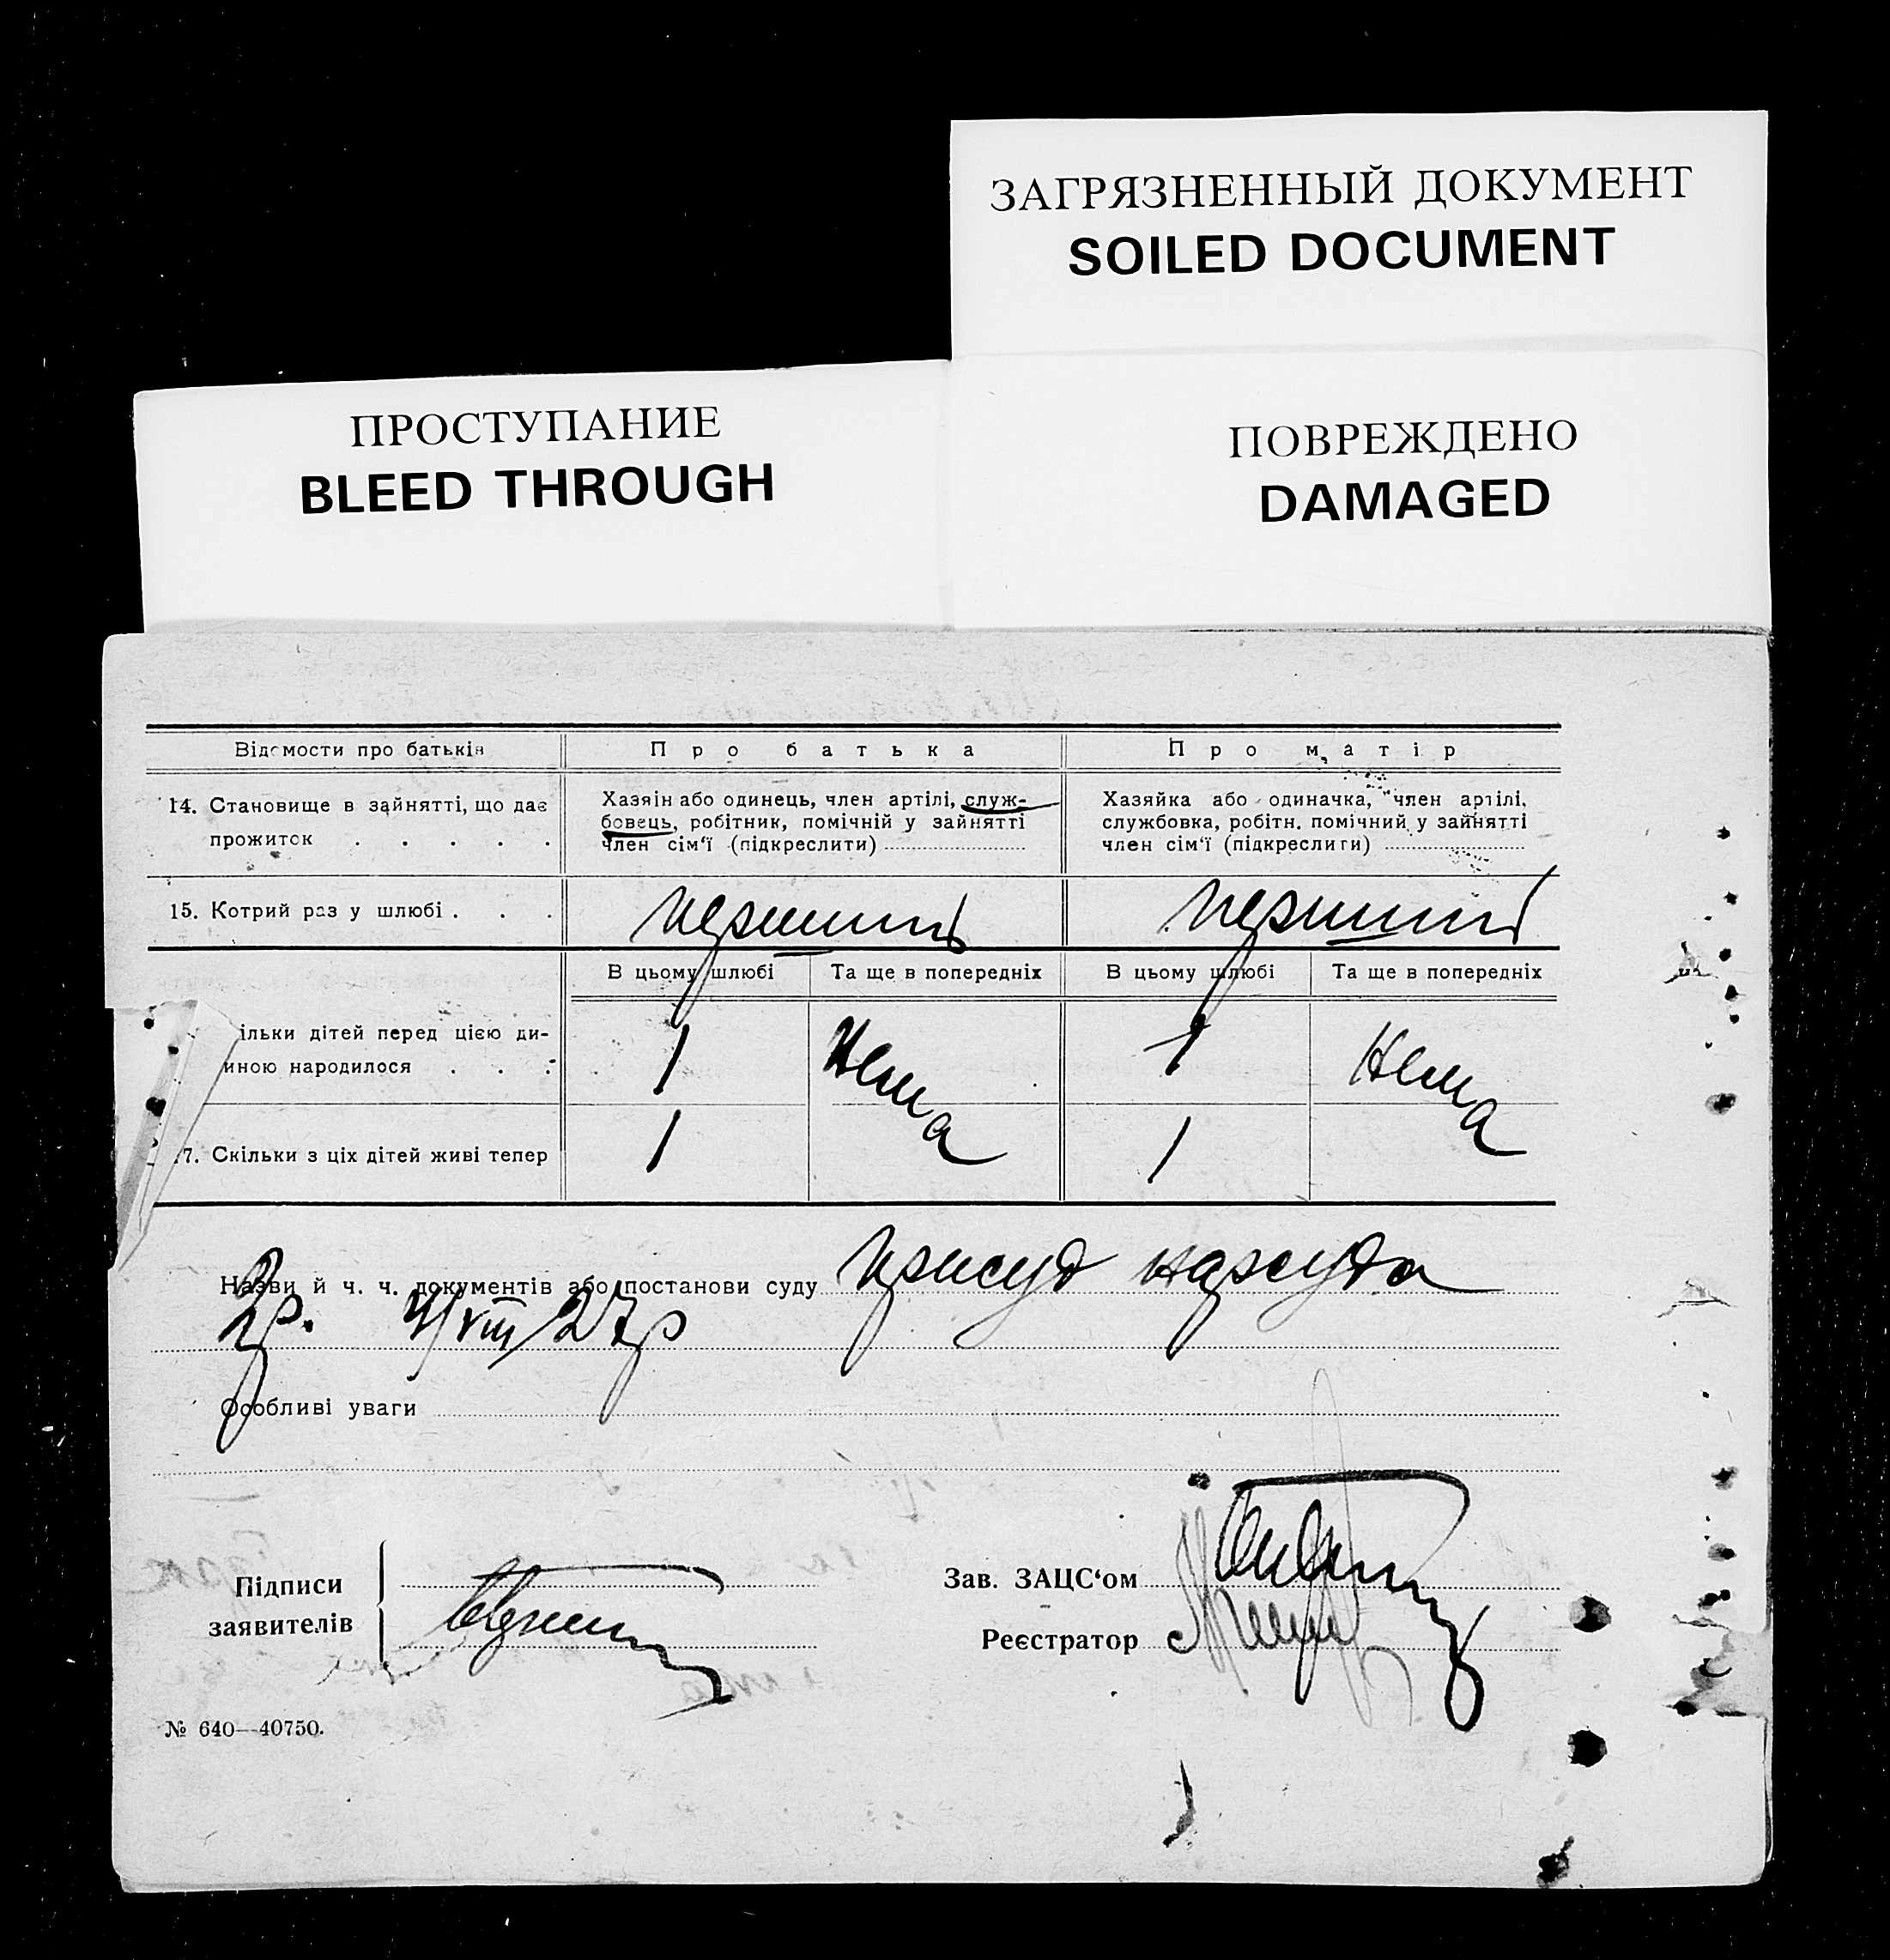 ЗАГРЯЗНЕННЫЙ ДОКУМЕНТ
SOILED DOCUMENT
ПРОСТУПАНИЕ
BLEED THROUGH
ПОВРЕЖДЕНО
DAMAGED
Відомости про батьків
Про батька
Про матір
14. Становище в зайнятті, що дає
прожиток . . . . .
Хазяін або одинець, член артілі, служ-
бовець, робітник, помічній у зайнятті
член сім'ї (підкреслити)
Хазяйка або одиначка, член артілі,
службовка, робітн. помічний у зайнятті
член сім'ї (підкреслити)
15. Котрий раз у шлюбі . . .
перший
перший
В цьому шлюбі
Та ще в попередніх
В цьому шлюбі
Та ще в попередніх
ільки дітей перед цією ди-
иною народилося . . .
1
Нема
1
Нема
7. Скільки з ціх дітей живі тепер
1
1
Назви й ч. ч. документів або постанови суду присуд нарсуда
2р. 4/VIII/27р
Особливі уваги
Підписи
заявителів
Зав. ЗАЦС‘ом
Реєстратор
№ 640—40750.